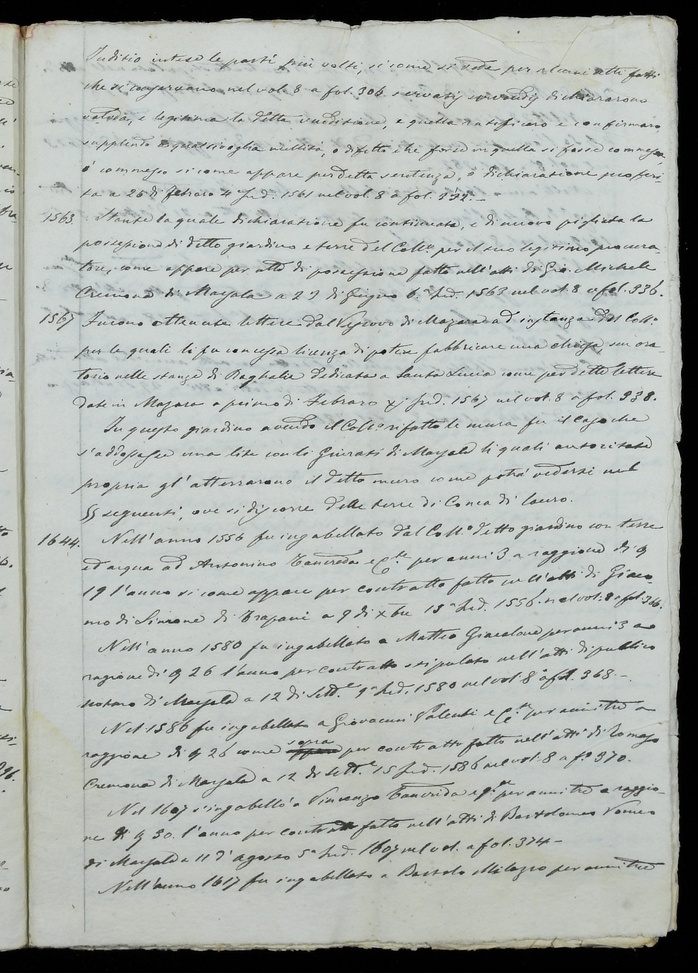 Juditio intese le parti più volti, si come si vede per alcuni atti fatti
che si conservano nel vol. 8 a fol. 306. servatis servandis dichiararono
valida, e legitima la detta venditione, e quella ratificaro e confirmaro
supplendo a qualsivoglia nullità, o difetto che forse in quella si fosse commesso
ò commesso si come appare per detta sentenza, o dichiaratione proferi
ta a 25 di febraro 4 Ind. 1561 nel vol. 8 a fol. 332.
1563 Stante la quale dichiaratione fu continuata, e di nuovo pigliata la
possessione di detto giardino e terre del Coll.o per il suo legitimo procura
tore, come appare per atto di possessione fatto nell'atti di Gio. Michele
Cremona di Marsala a 23 di Giugno 6.a Ind. 1563 nel vol. 8 a fol. 336.
1567 Furono ottenute lettere dal Vescovo di Mazara ad instanza del Coll.o
per le quali li fu concessa licenza di potere fabbricare una chiesa, seu ora-
torio nelle stanze di Raghalie dedicata a Santa Lucia come per dette lettere
date in Mazara a primo di Febraro xj Ind. 1567 nel vol. 8 a fol. 338.
In questo giardino avendo il Coll.o rifatto le mura fu il Caso che
s'addossasse una lite con li Giurati di Marsala li quali autoritate
propria gl'atterrarono il detto muro come potrà vedersi nel
§§ seguenti, ove si discorre delle terre di Conca di lauro.
1644. Nell'anno 1556 fu ingabellato dal Coll.o detto giardino con terre
ed acqua ad Antonino Tancreda e C. per anni 3 a raggione di 9
19 l'anno si come appare per contratto fatto nell'atti di Giaco-
mo di Simone di Trapani a 9 di xbre 15.a Ind. 1556. nel vol. 8 a fol. 346.
Nell'anno 1580 fu ingabellato a Matteo Giacalone per anni 3 a
ragione di 9 26 l'anno per contratto stipulato nell'atti di publico
notaro di Marsala a 12 di Sett.e 9.a Ind. 1580 nel vol. 8 a fol. 368.-
Nel 1586 fu ingabellato a Giovanni Valenti e C. per anni tre a
raggione di 9 26 come sopra per contratto fatto nell'atti di Tomaso
Cremona di Marsala a 12 di Sett.e 15 Ind. 1586 nel vol. 8 a f.o 370.
Nel 1607 s'ingabellò a Vincenzo Tancreda e per anni tre a raggio-
ne di 9 30. l'anno per contratto fatto nell'atti di Bartolomeo Vomero
di Marsala a 11 d'agosto 5.a Ind. 1607 nel vol. a fol. 374-
Nell'anno 1617 fu ingabellato a Bartolo Milazzo per anni tre